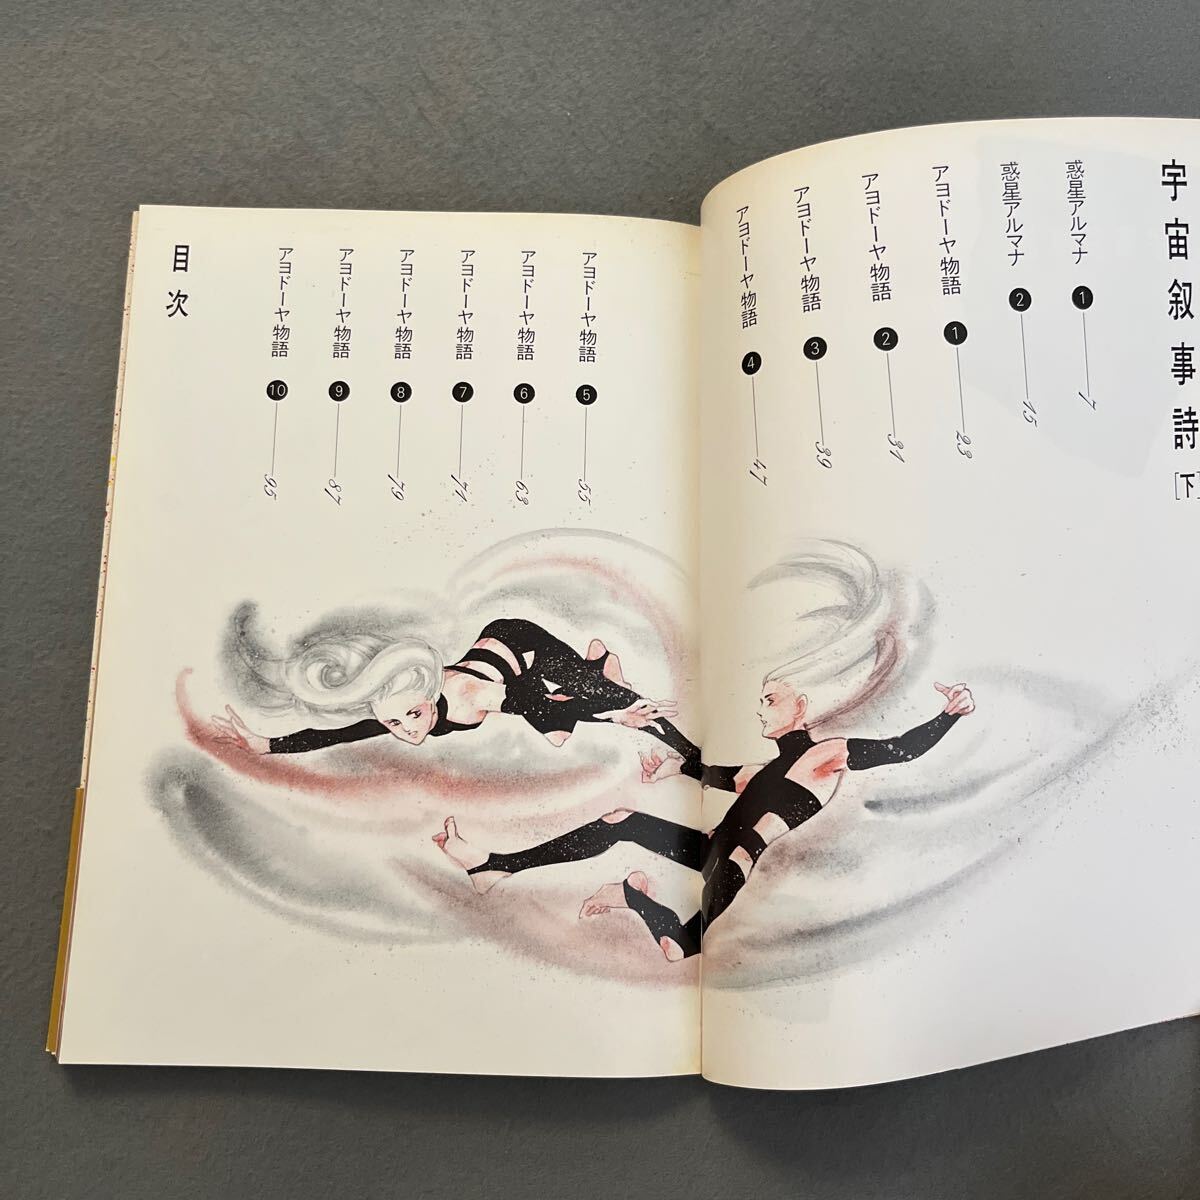 宇宙叙事詩[下]
惑星アルマナ 1 7
惑星アルマナ 2 15
アヨドーヤ物語 1 23
アヨドーヤ物語 2 31
アヨドーヤ物語 3 39
アヨドーヤ物語 4 47
アヨドーヤ物語 5 55
アヨドーヤ物語 6 63
アヨドーヤ物語 7 71
アヨドーヤ物語 8 79
アヨドーヤ物語 9 87
アヨドーヤ物語 10 95
目次